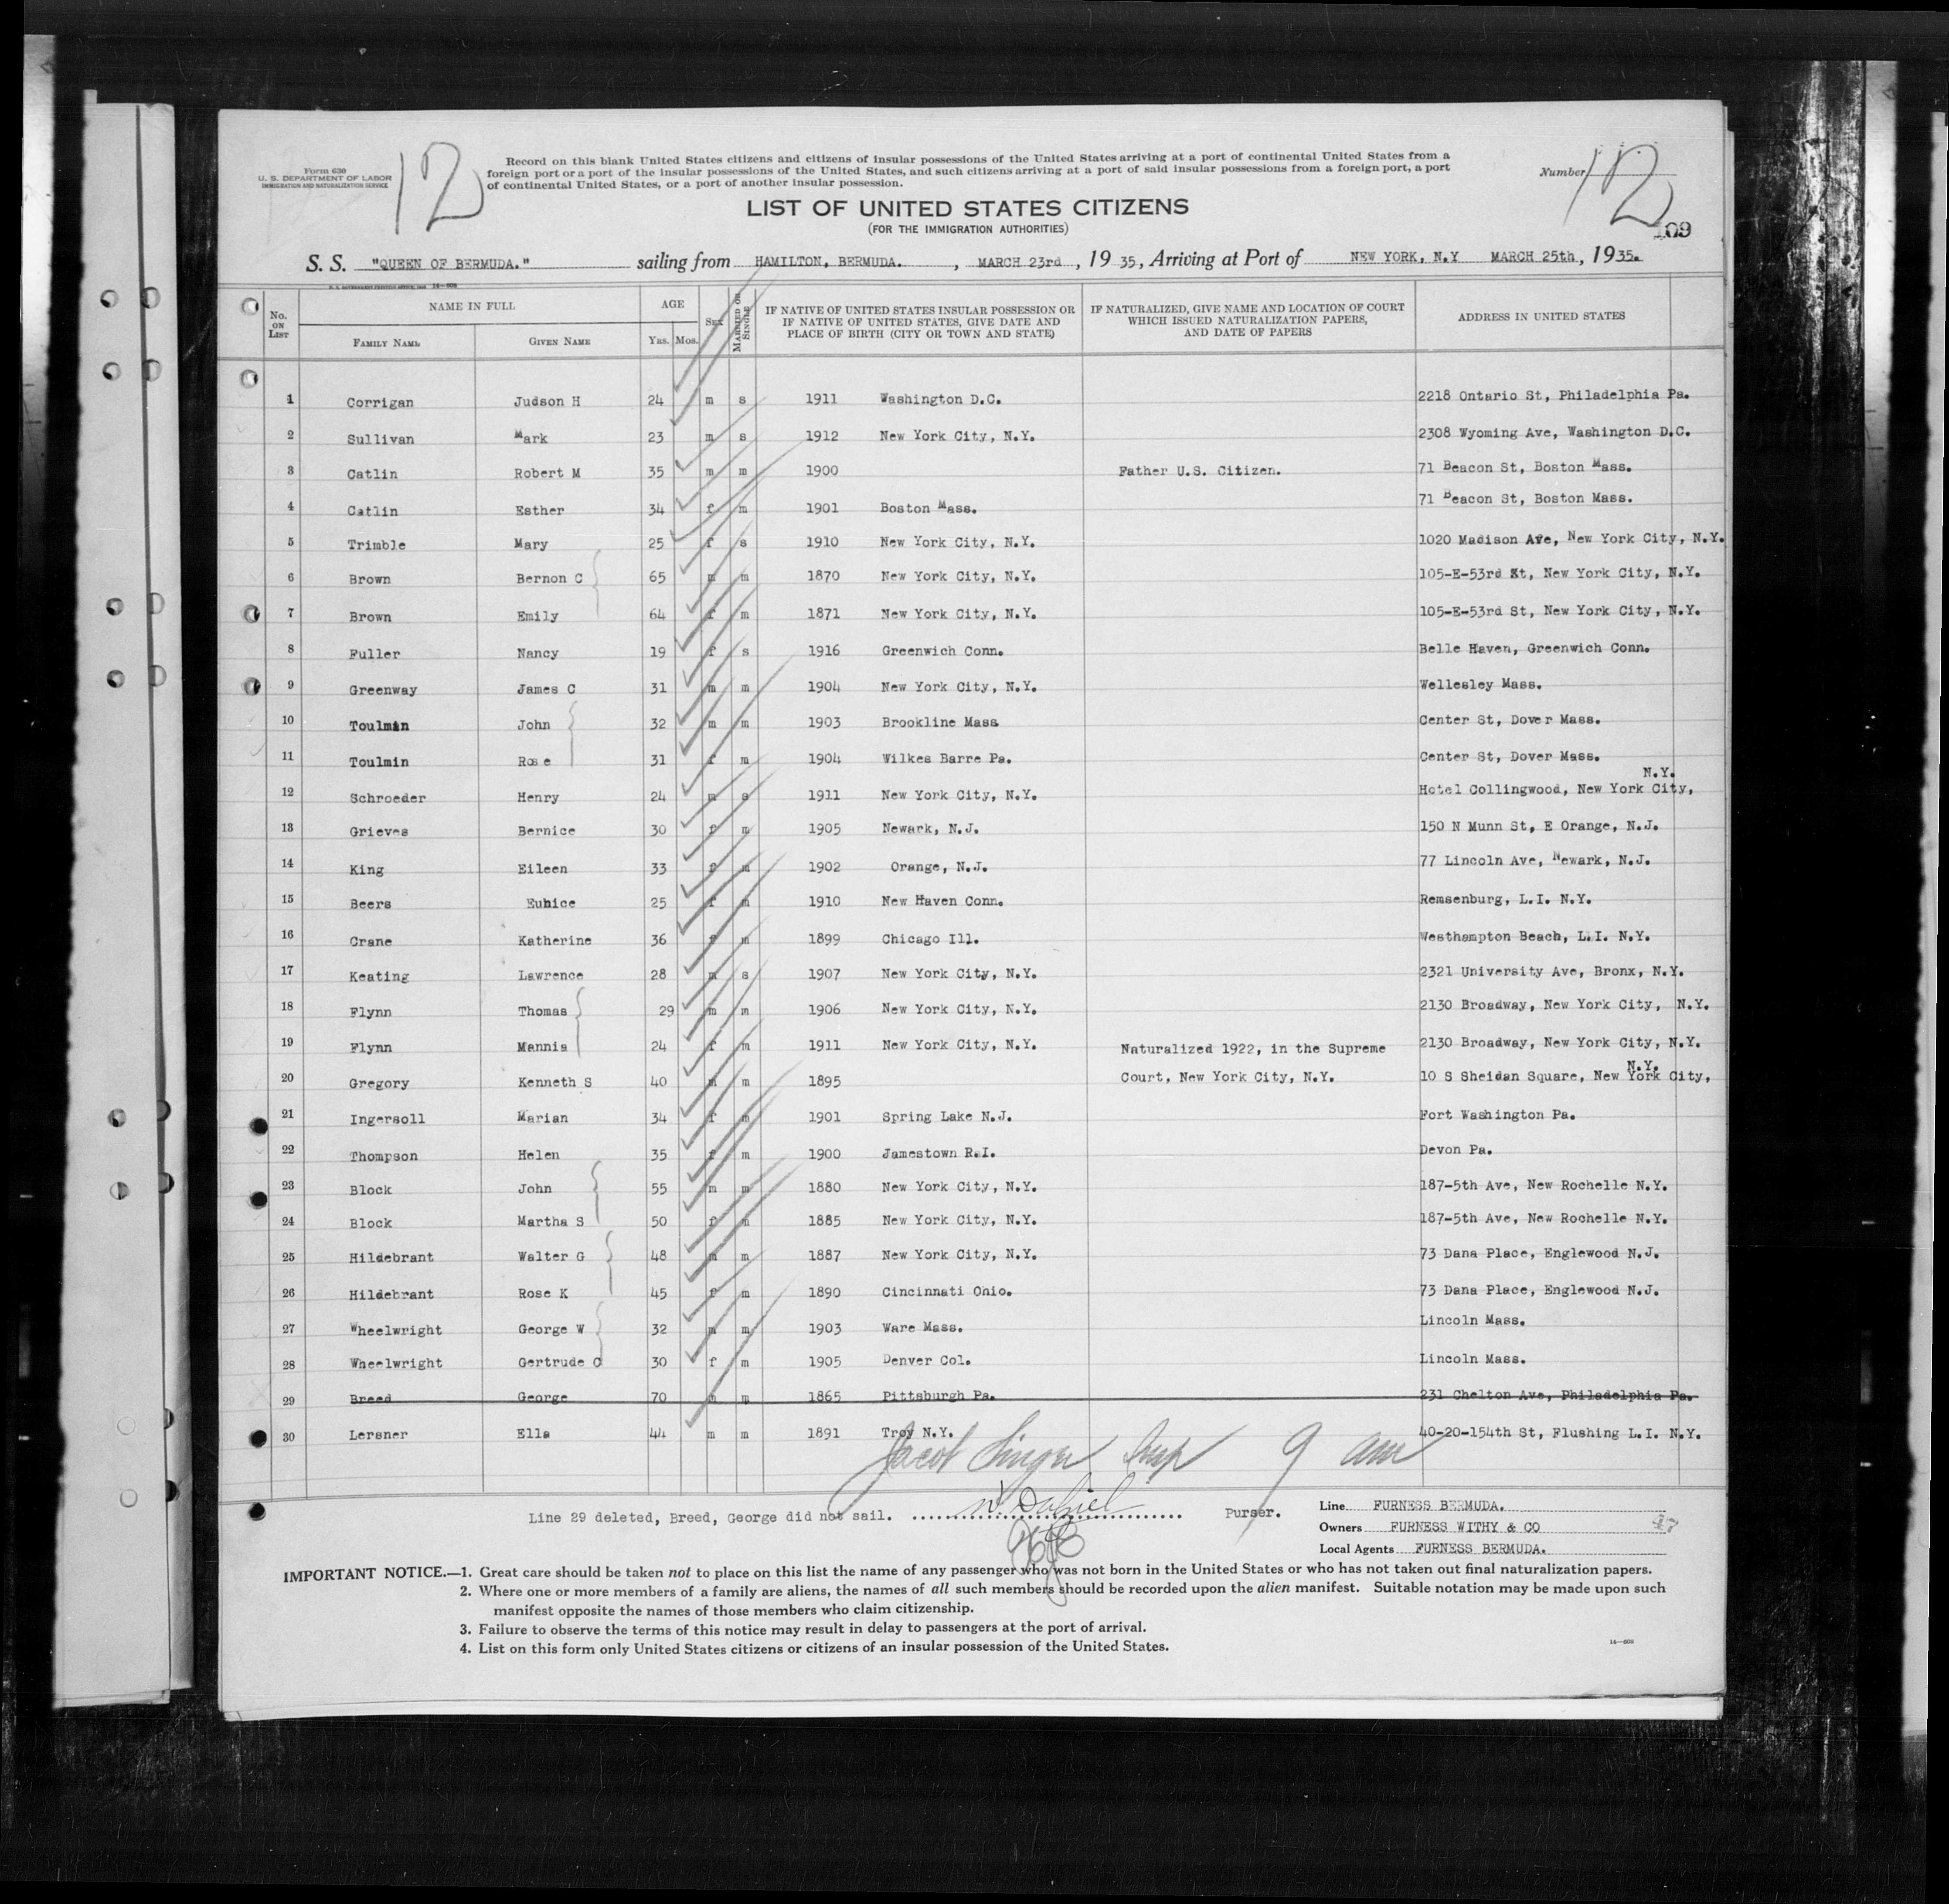 Form 630
U. S. DEPARTMENT OF LABOR
IMMIGRATION AND NATURALIZATION SERVICE
12
Record on this blank United States citizens and citizens of insular possessions of the United States arriving at a port of continental United States from a
foreign port or a port of the insular possessions of the United States, and such citizens arriving at a port of said insular possessions from a foreign port, a port
of continental United States, or a port of another insular possession.
Number 12
109
LIST OF UNITED STATES CITIZENS
(FOR THE IMMIGRATION AUTHORITIES)
S. S. "QUEEN OF BERMUDA." sailing from HAMILTON, BERMUDA. , MARCH 23rd , 19 35, Arriving at Port of NEW YORK, N.Y MARCH 25th , 19 35.
No. ON LIST NAME IN FULL FAMILY NAME GIVEN NAME AGE YRS. MOS. SEX MARRIED OR SINGLE IF NATIVE OF UNITED STATES INSULAR POSSESSION OR IF NATIVE OF UNITED STATES, GIVE DATE AND PLACE OF BIRTH (CITY OR TOWN AND STATE) IF NATURALIZED, GIVE NAME AND LOCATION OF COURT WHICH ISSUED NATURALIZATION PAPERS, AND DATE OF PAPERS ADDRESS IN UNITED STATES
1 Corrigan Judson H 24 m s 1911 Washington D.C. 2218 Ontario St, Philadelphia Pa.
2 Sullivan Mark 23 m s 1912 New York City, N.Y. 2308 Wyoming Ave, Washington D.C.
3 Catlin Robert M 35 m m 1900 Father U.S. Citizen. 71 Beacon St, Boston Mass.
4 Catlin Esther 34 f m 1901 Boston Mass. 71 Beacon St, Boston Mass.
5 Trimble Mary 25 f s 1910 New York City, N.Y. 1020 Madison Ave, New York City, N.Y.
6 Brown Bernon C 65 m m 1870 New York City, N.Y. 105-E-53rd St, New York City, N.Y.
7 Brown Emily 64 f m 1871 New York City, N.Y. 105-E-53rd St, New York City, N.Y.
8 Fuller Nancy 19 f s 1916 Greenwich Conn. Belle Haven, Greenwich Conn.
9 Greenway James C 31 m m 1904 New York City, N.Y. Wellesley Mass.
10 Toulmin John 32 m m 1903 Brookline Mass Center St, Dover Mass.
11 Toulmin Rose 31 f m 1904 Wilkes Barre Pa. Center St, Dover Mass.
12 Schroeder Henry 24 m s 1911 New York City, N.Y. Hotel Collingwood, New York City, N.Y.
13 Grieves Bernice 30 f m 1905 Newark, N.J. 150 N Munn St, E Orange, N.J.
14 King Eileen 33 f m 1902 Orange, N.J. 77 Lincoln Ave, Newark, N.J.
15 Beers Eunice 25 f m 1910 New Haven Conn. Remsenburg, L.I. N.Y.
16 Crane Katherine 36 f m 1899 Chicago Ill. Westhampton Beach, L.I. N.Y.
17 Keating Lawrence 28 m s 1907 New York City, N.Y. 2321 University Ave, Bronx, N.Y.
18 Flynn Thomas 29 m m 1906 New York City, N.Y. 2130 Broadway, New York City, N.Y.
19 Flynn Mannis 24 f m 1911 New York City, N.Y. 2130 Broadway, New York City, N.Y.
20 Gregory Kenneth S 40 m m 1895 Naturalized 1922, in the Supreme Court, New York City, N.Y. 10 S Sheidan Square, New York City, N.Y.
21 Ingersoll Marian 34 f m 1901 Spring Lake N.J. Fort Washington Pa.
22 Thompson Helen 35 f m 1900 Jamestown R.I. Devon Pa.
23 Block John 55 m m 1880 New York City, N.Y. 187-5th Ave, New Rochelle N.Y.
24 Block Martha S 50 f m 1885 New York City, N.Y. 187-5th Ave, New Rochelle N.Y.
25 Hildebrant Walter G 48 m m 1887 New York City, N.Y. 73 Dana Place, Englewood N.J.
26 Hildebrant Rose K 45 f m 1890 Cincinnati Ohio. 73 Dana Place, Englewood N.J.
27 Wheelwright George W 32 m m 1903 Ware Mass. Lincoln Mass.
28 Wheelwright Gertrude C 30 f m 1905 Denver Col. Lincoln Mass.
29 Breed George 70 m m 1865 Pittsburgh Pa. 231 Chelton Ave, Philadelphia Pa.
30 Lersner Ella 44 m m 1891 Troy N.Y. 40-20-154th St, Flushing L.I. N.Y.
Jacob Singer Insp 9 am
Line 29 deleted, Breed, George did not sail. Purser.
Line FURNESS BERMUDA.
Owners FURNESS WITHY & CO
Local Agents FURNESS BERMUDA.
IMPORTANT NOTICE.—1. Great care should be taken not to place on this list the name of any passenger who was not born in the United States or who has not taken out final naturalization papers.
2. Where one or more members of a family are aliens, the names of all such members should be recorded upon the alien manifest. Suitable notation may be made upon such
manifest opposite the names of those members who claim citizenship.
3. Failure to observe the terms of this notice may result in delay to passengers at the port of arrival.
4. List on this form only United States citizens or citizens of an insular possession of the United States.